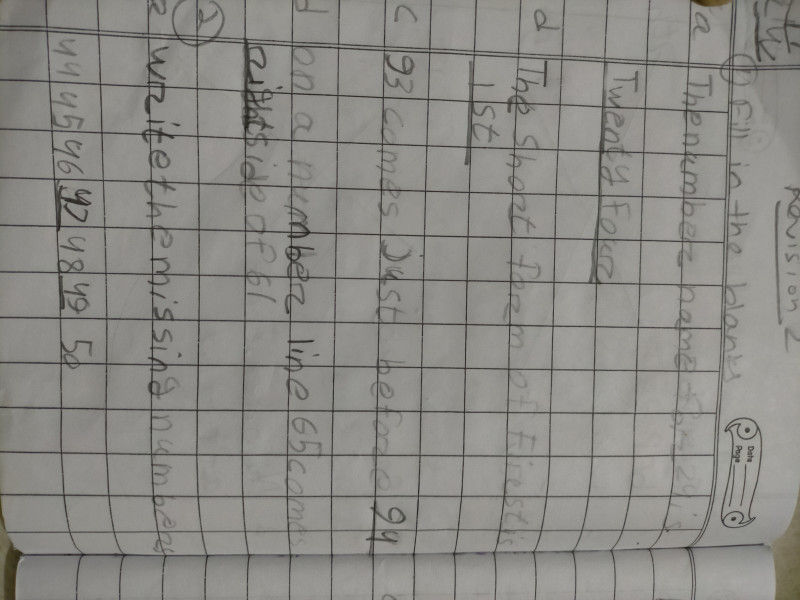 Revision 2
Date
Page
① Fill in the blanks
a The number name for 24 is
Twenty Four
d The Short form of First is
1st
c 93 comes Just before 94
d on a number line 65 comes
side of 61
②
a write the missing numbers
44 45 46 47 48 49 50